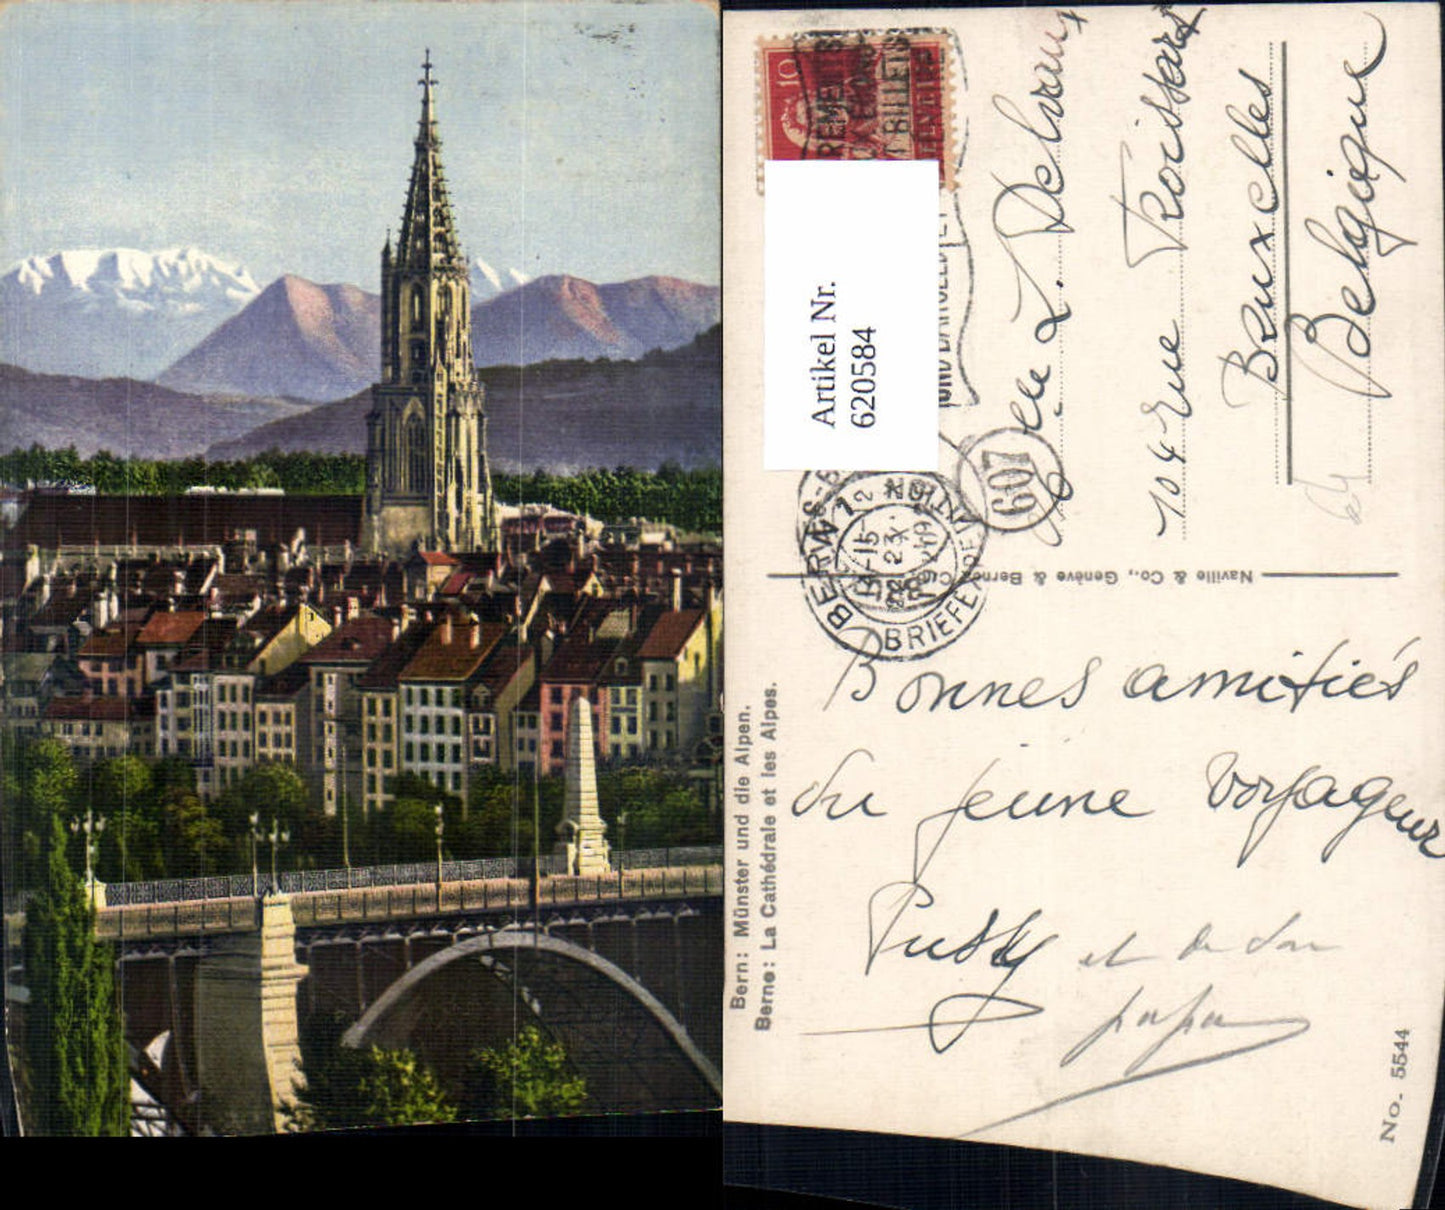 10
HELVETIA
BILLETS
Artikel Nr.
620584
607
BRIEFE
L. Delvaux
104 rue Froissart
Bruxelles
Belgique
Naville & Co., Genève & Berne
Bern: Münster und die Alpen.
Berne: La Cathédrale et les Alpes.
Bonnes amitiés
du jeune voyageur
et de son
papa
No. 5544